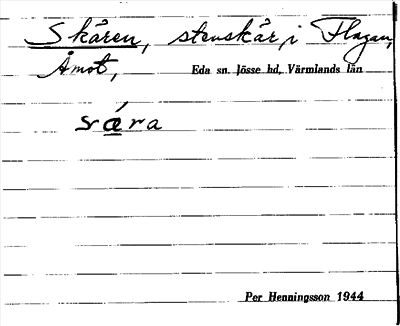 Skåren, stenskär, i Flagan,
Åmot, Eda sn. Jösse hd, Värmlands län
Per Henningsson 1944